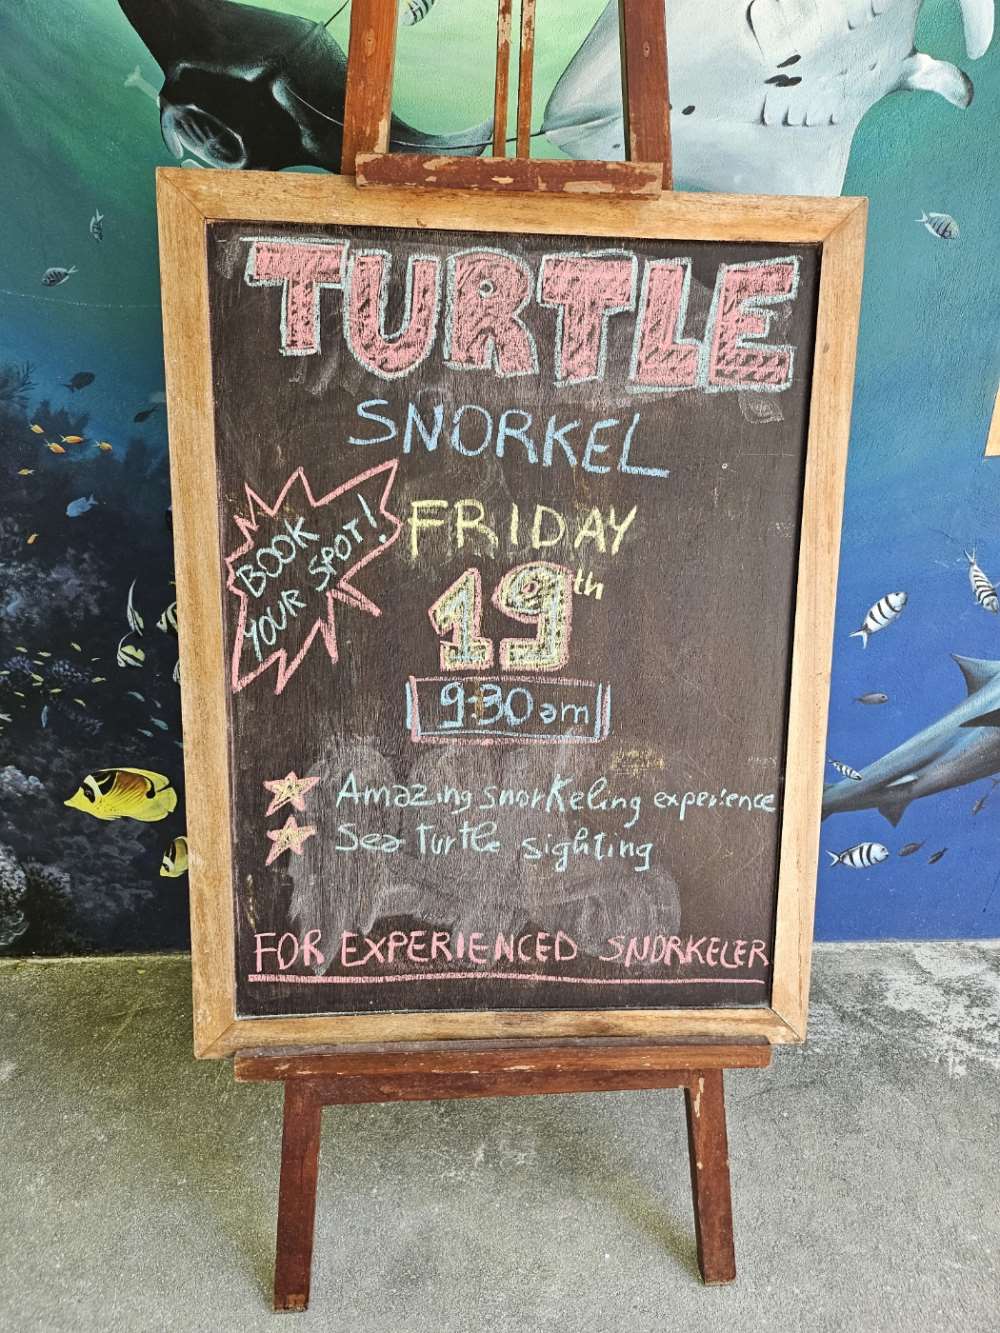 TURTLE
SNORKEL
BOOK
YOUR SPOT!
FRIDAY
19th
9:30am
Amazing snorkeling experience
Sea turtle sighting
FOR EXPERIENCED SNORKELER